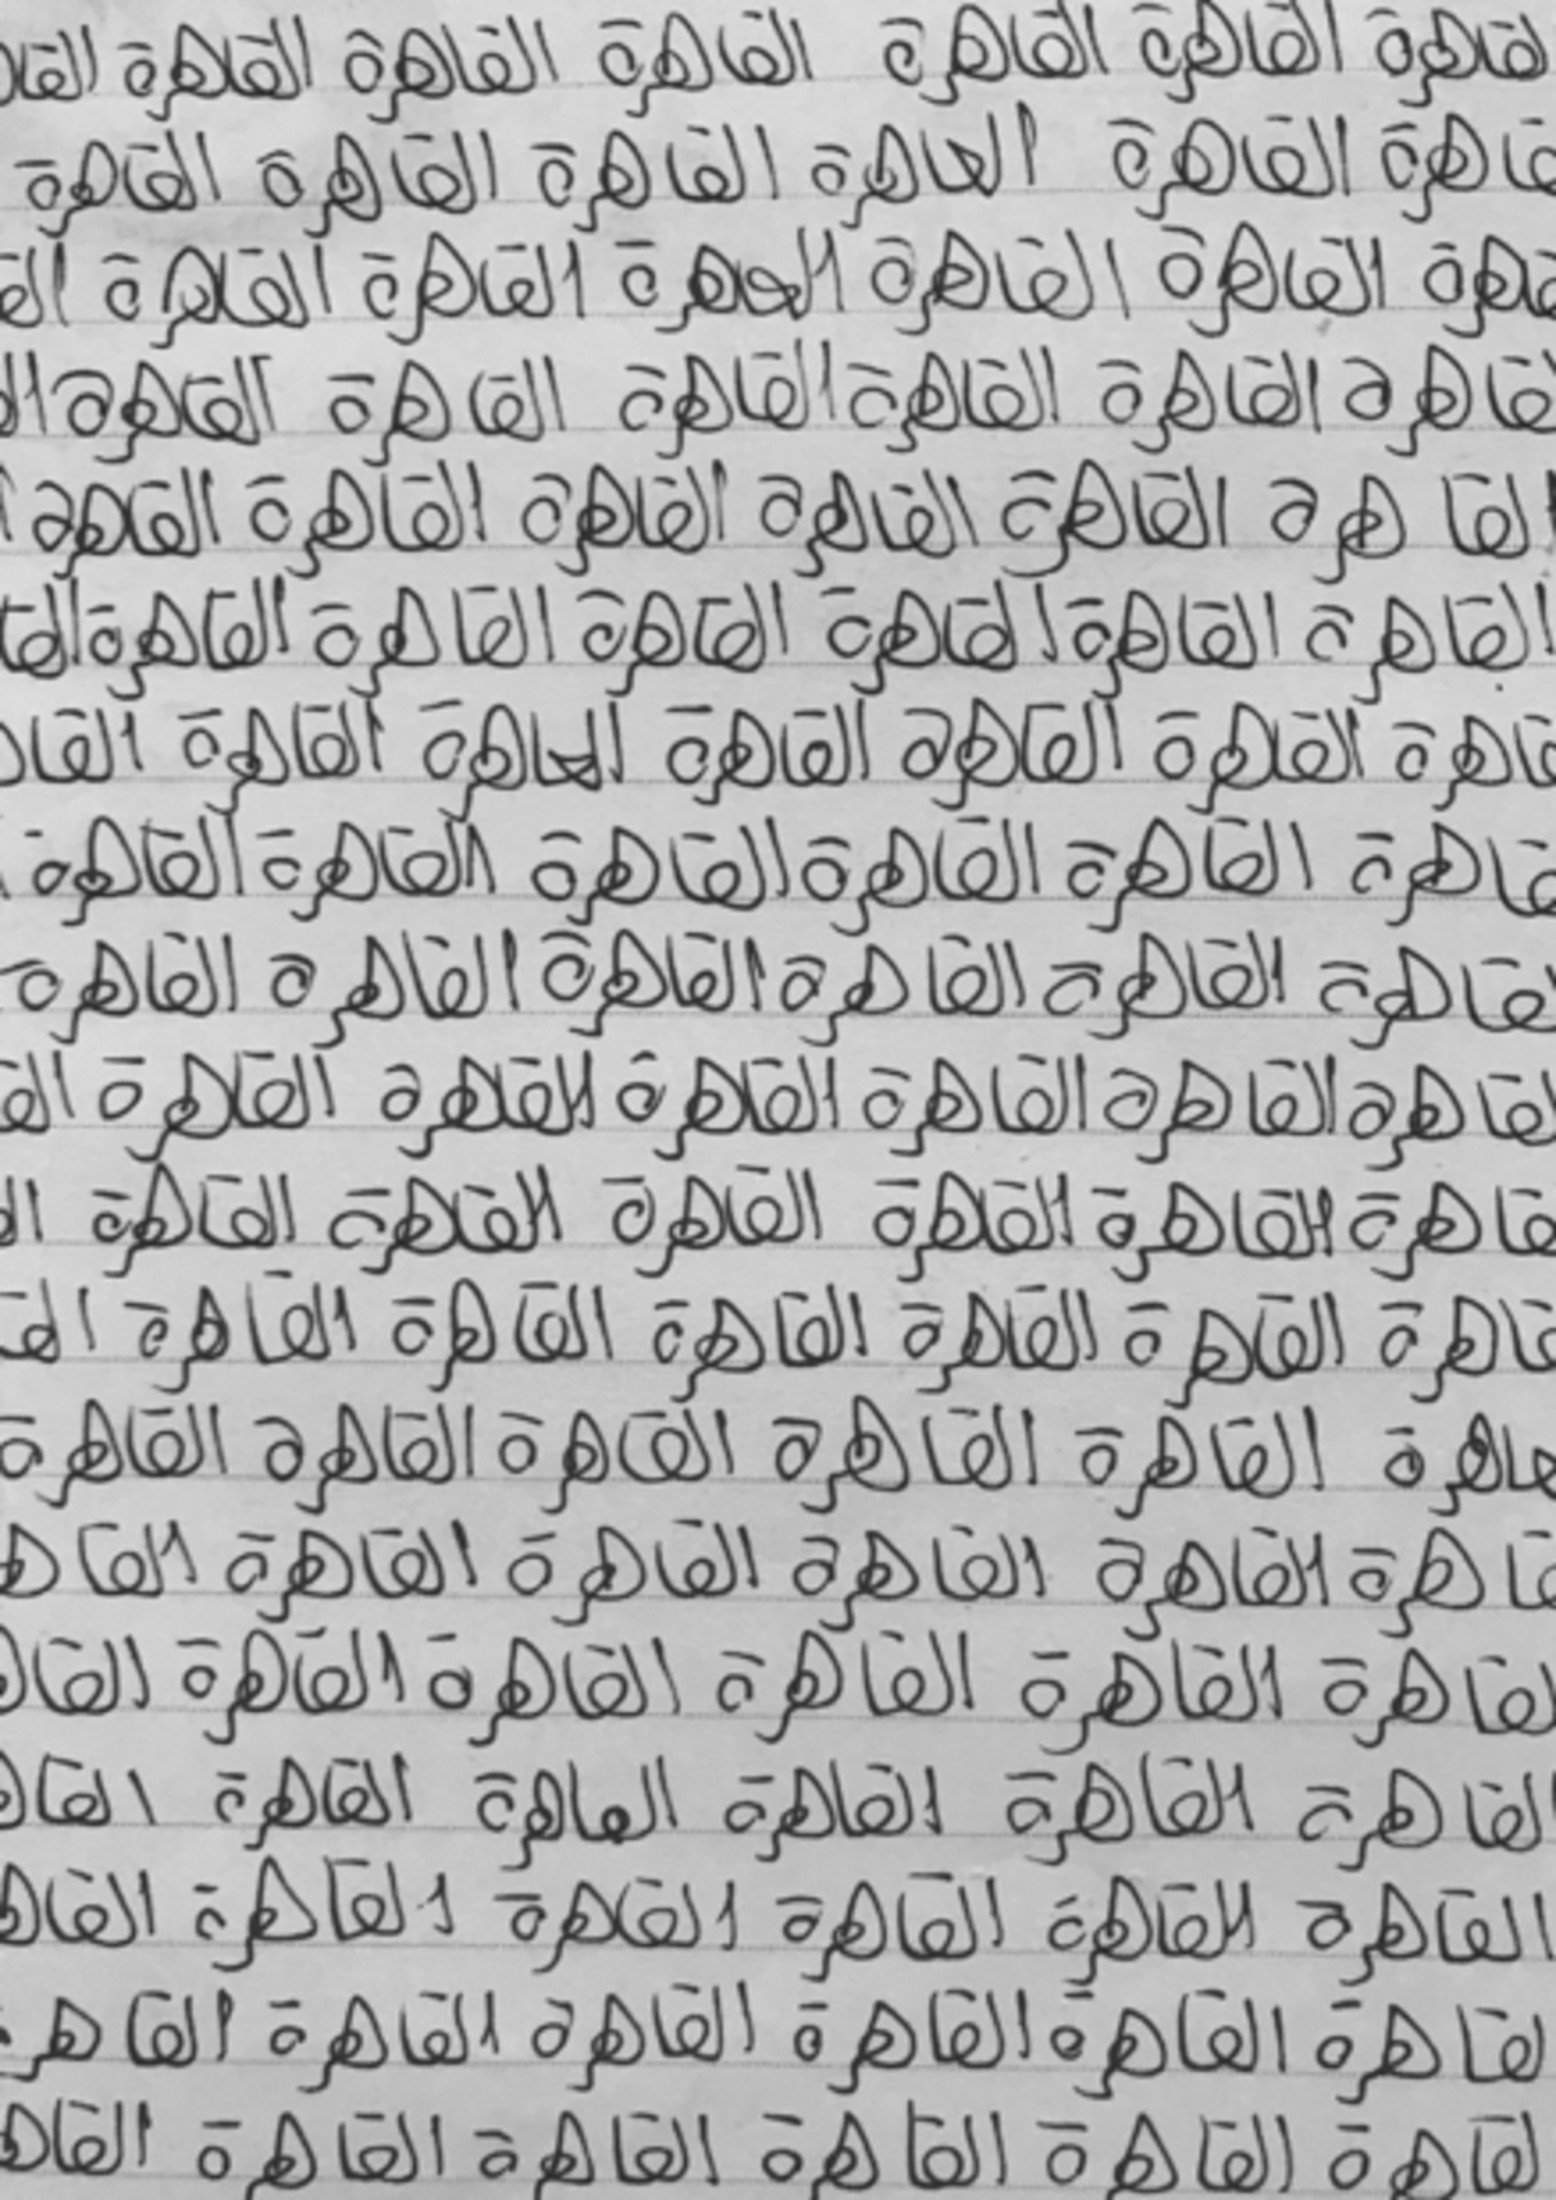 قاهرة القاهرة القاهرة القاهرة القاهرة القاهرة القا
قاهرة القاهرة القاهرة القاهرة القاهرة
قاهرة القاهرة القاهرة القاهرة القاهرة الق
قاهرة القاهرة القاهرة القاهرة القاهرة القاهرة ال
القاهرة القاهرة القاهرة القاهرة القاهرة القاهرة
القاهرة القاهرة القاهرة القاهرة القاهرة القاهرة القا
قاهرة القاهرة القاهرة القاهرة القاهرة القا
قاهرة القاهرة القاهرة القاهرة القاهرة القاهرة
قاهرة القاهرة القاهرة القاهرة القاهرة القاهرة
لقاهرة القاهرة القاهرة القاهرة القاهرة القاهرة الق
قاهرة القاهرة القاهرة القاهرة القاهرة القاهرة ال
قاهرة القاهرة القاهرة القاهرة القاهرة القاهرة الق
قاهرة القاهرة القاهرة القاهرة القاهرة القاهرة
قاهرة القاهرة القاهرة القاهرة القاهرة القاه
لقاهرة القاهرة القاهرة القاهرة القاهرة القا
القاهرة القاهرة القاهرة القاهرة القا
القاهرة القاهرة القاهرة القاهرة القاهرة القاه
لقاهرة القاهرة القاهرة القاهرة القاهرة القاهر
لقاهرة القاهرة القاهرة القاهرة القاهرة القاه